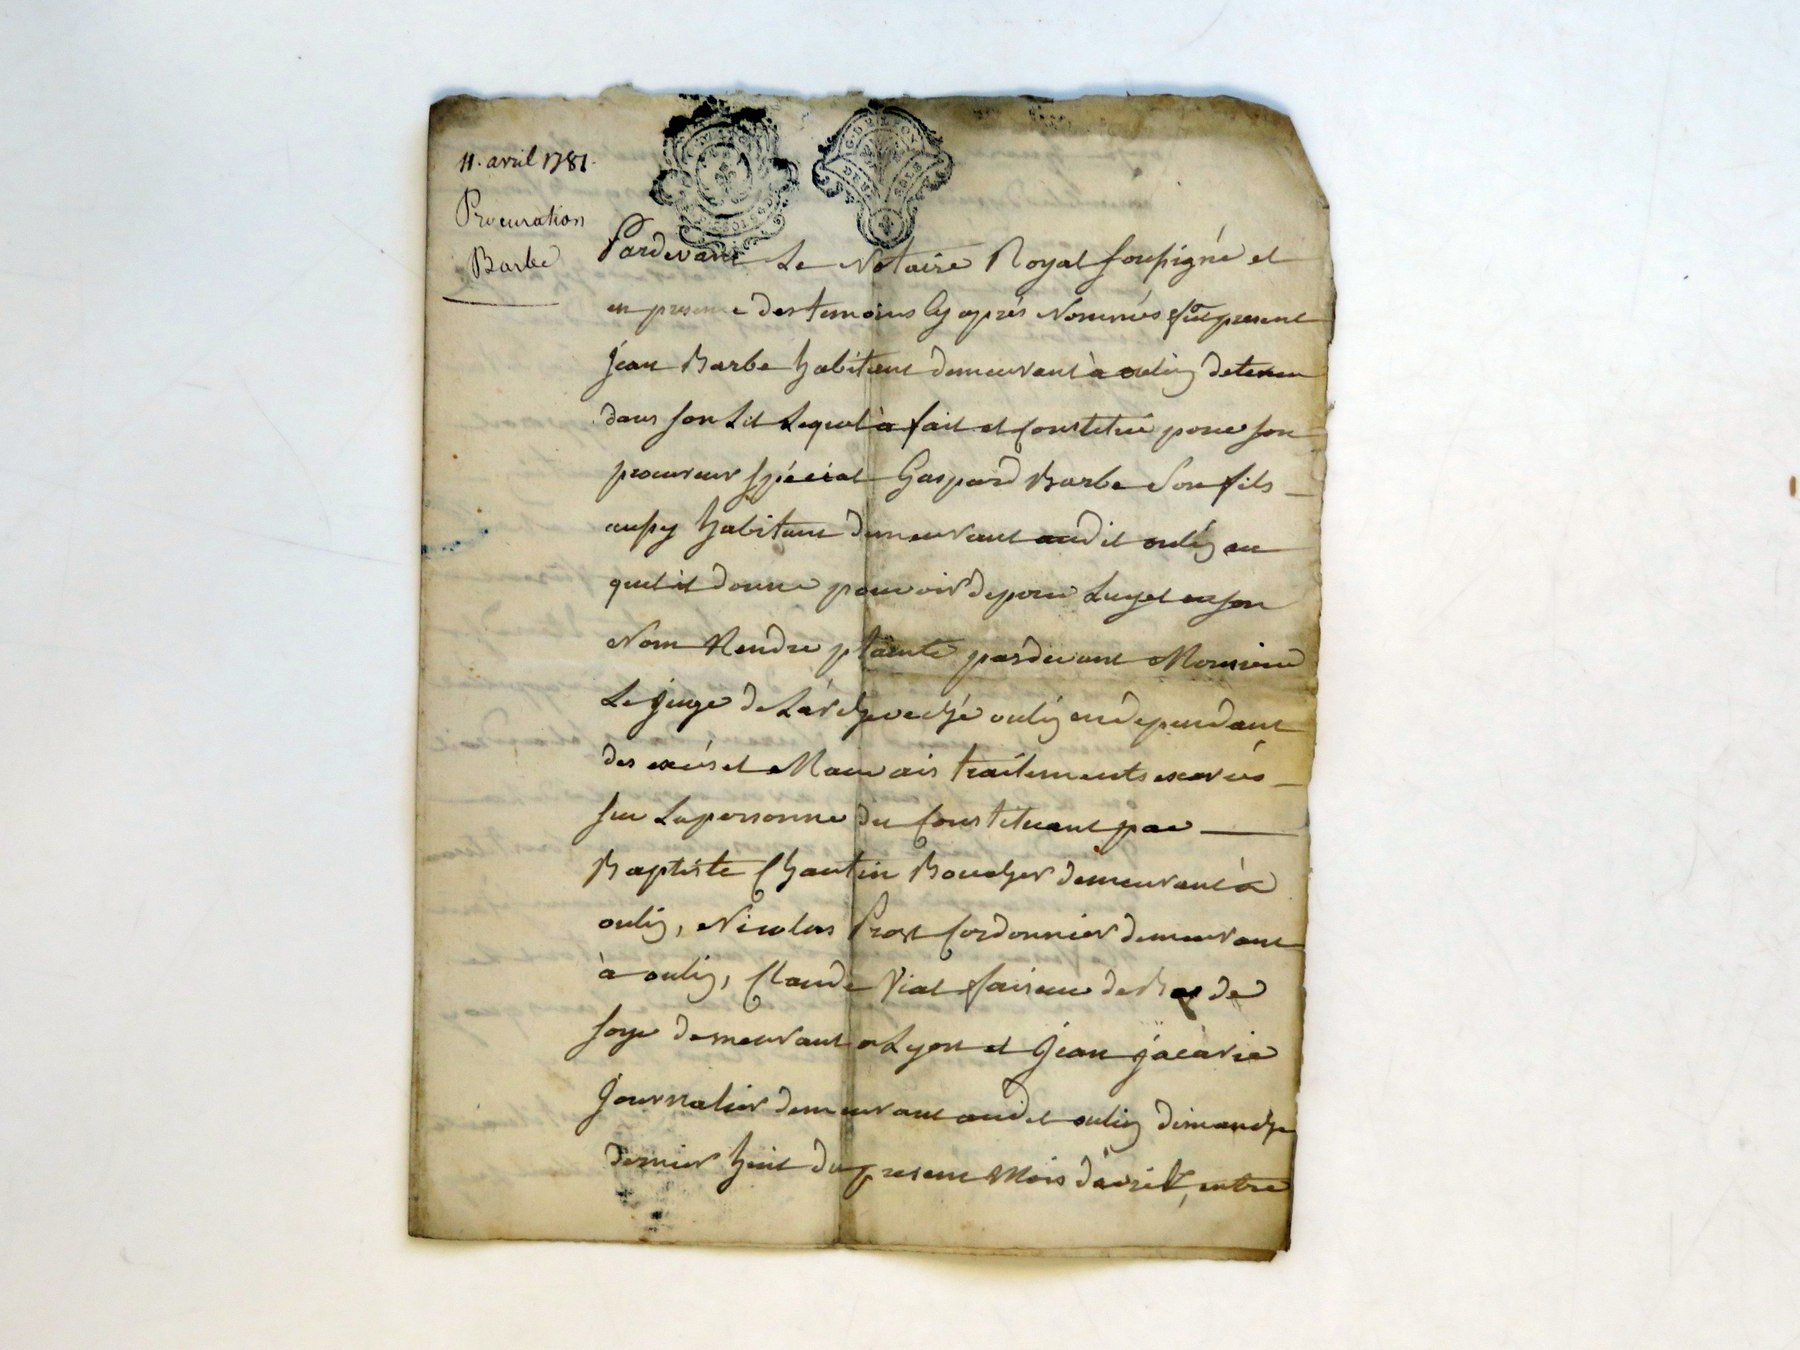 11. avril 1781.
Procuration
Barbe
G. DE LYON
DEUX SOLS
Pardevant Le Notaire Royal soussigné et
en presence des temoins Cy après Nommés fut present
Jean Barbe habitant demeurant à oulin detenu
dans son Lit Lequel à fait et Constitué pour son
procureur spécial Gaspard Barbe Son fils
aussy habitant demeurant audit oulin au
quel il donne pouvoir de pour Luy et en son
Nom Rendre plainte pardevant Monsieur
Le Juge de L'archeveché oulin en dependant
des excés et Mauvais traitements exercés
sur La personne du Constituant par
Baptiste Chantin Boucher demeurant à
oulin, Nicolas Prost Cordonnier demeurant
à oulin, Claude Vial faiseur de Bas de
soye demeurant a Lyon et Jean Jacarie
Journalier demeurant audit oulin dimanche
dernier huit du present Mois d'avril, entre